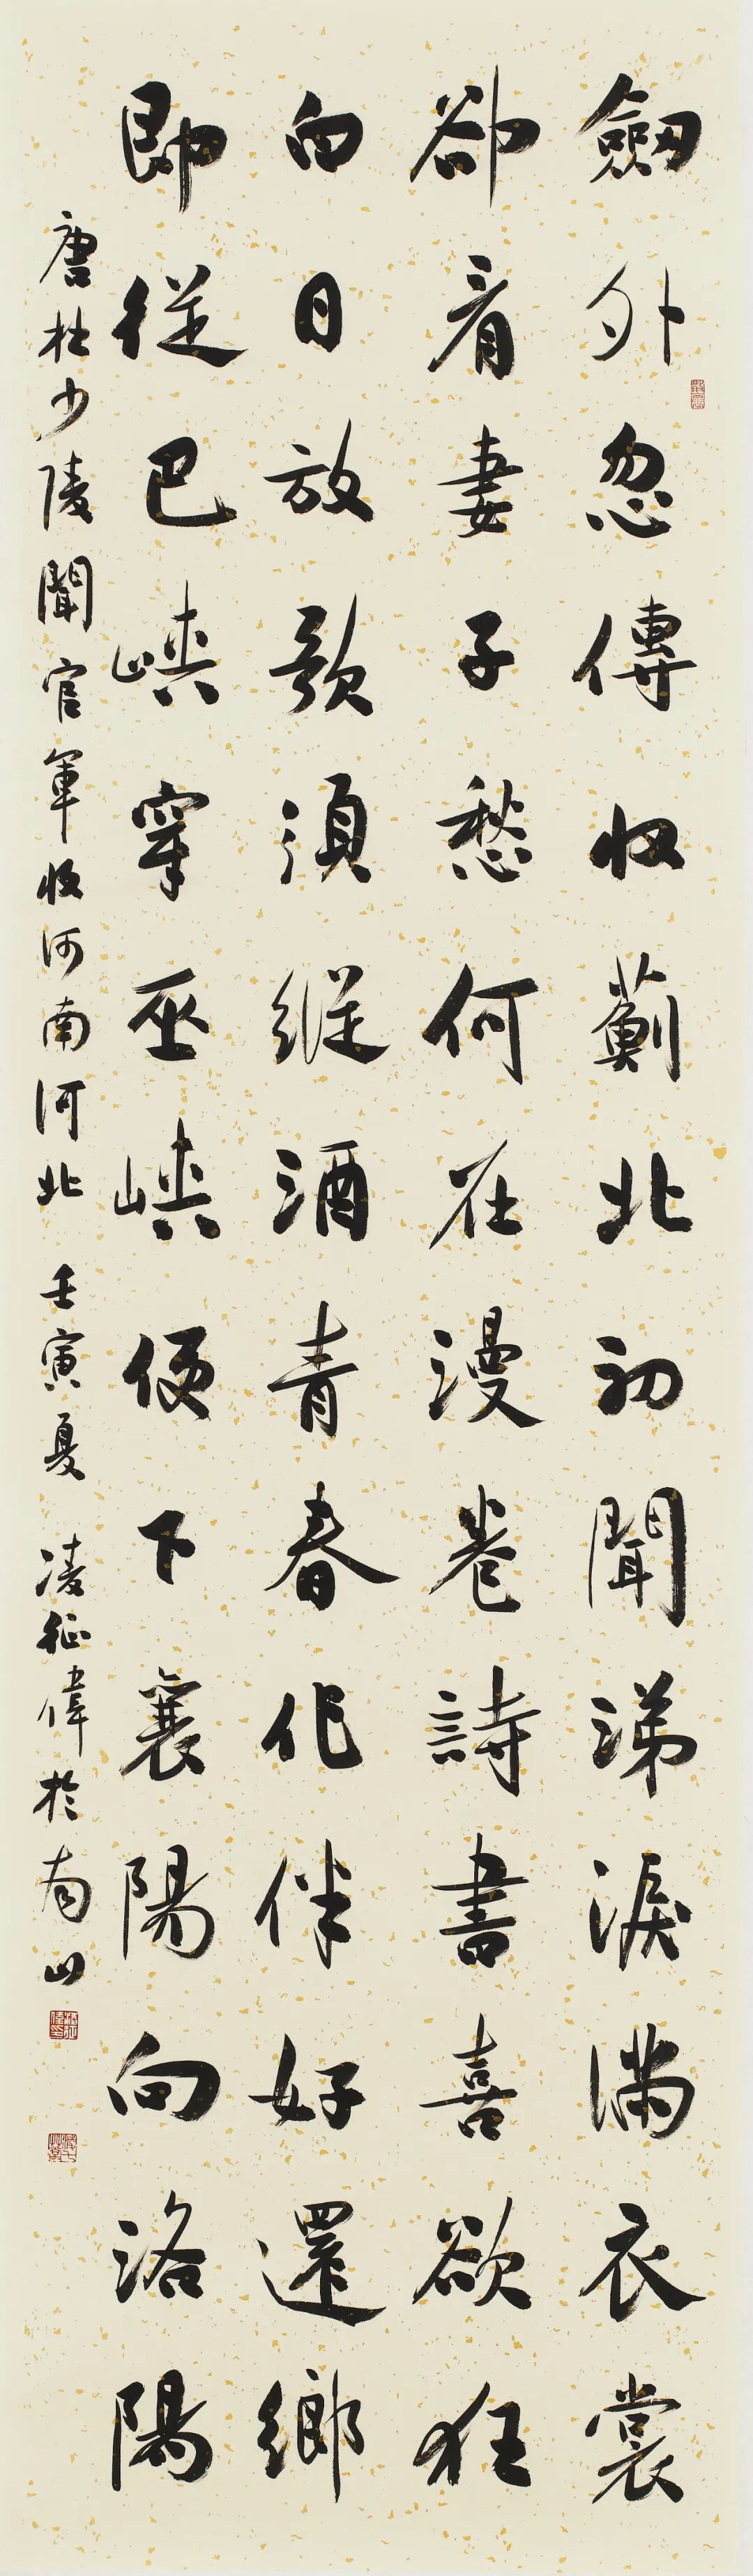 劒外忽傳收薊北初聞涕淚滿衣裳
卻看妻子愁何在漫卷詩書喜欲狂
白日放歌須縱酒青春作伴好還鄉
即從巴峽穿巫峽便下襄陽向洛陽
唐杜少陵聞官軍收河南河北 壬寅夏 凌征偉於南山